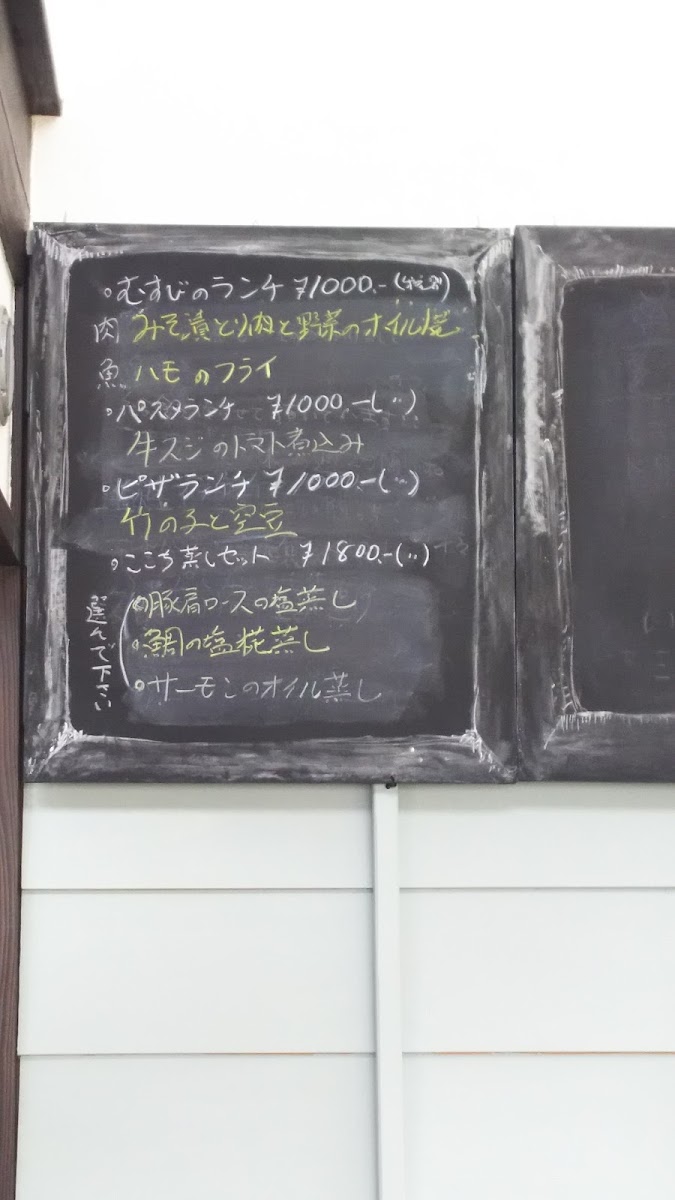 ・むすびのランチ ¥1000.-(
肉 みそ漬とり肉と野菜のオイル焼
魚 ハモのフライ
・パスタランチ ¥1000-(〃)
牛スジのトマト煮込み
・ピザランチ ¥1000-(〃)
竹の子と空豆
・ここち蒸しセット ¥1800.-(〃)
選んで下さい
○豚肩ロースの塩蒸し
○鯛の塩糀蒸し
○サーモンのオイル蒸し